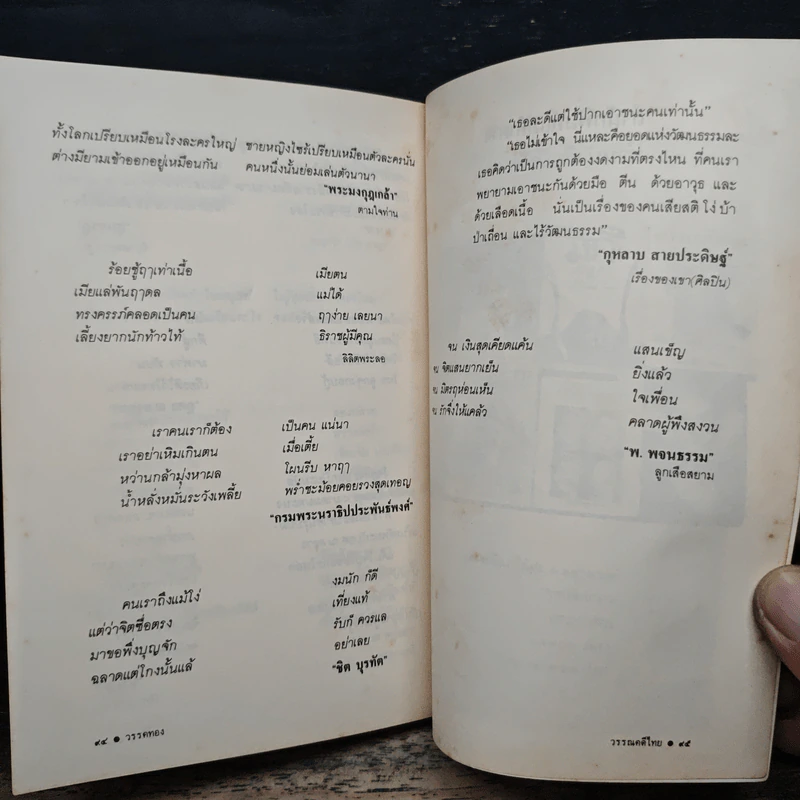 ทั้งโลกเปรียบเหมือนโรงละครใหญ่ ชายหญิงไซร้เปรียบเหมือนตัวละครนั่น
ต่างมียามเข้าออกอยู่เหมือนกัน คนหนึ่งนั้นย่อมเล่นตัวนานา
"พระมงกุฎเกล้า"
ตามใจท่าน
ร้อยชู้ฤๅเท่าเนื้อ เมียตน
เมียแล่พันฤๅดล แม่ได้
ทรงครรภ์คลอดเป็นคน ฤๅง่าย เลยนา
เลี้ยงยากนักท้าวไท้ ธิราชผู้มีคุณ
ลิลิตพระลอ
เราคนเราก็ต้อง เป็นคน แน่นา
เราอย่าเหิมเกินตน เมื่อเตี้ย
หว่านกล้ามุ่งหาผล โผนรีบ หาฤๅ
น้ำหลั่งหมั่นระวังเพลี้ย พร่ำชะม้อยคอยรวงสุดเทอญ
"กรมพระนราธิปประพันธ์พงศ์"
คนเราถึงแม้โง่ งมนัก ก็ดี
แต่ว่าจิตซื่อตรง เที่ยงแท้
มาขอพึ่งบุญจัก รับก็ ควรแล
ฉลาดแต่โกงนั้นแล้ อย่าเลย
"ชิต บุรทัต"
๙๔ ● วรรคทอง
"เธอละดีแต่ใช้ปากเอาชนะคนเท่านั้น"
"เธอไม่เข้าใจ นี่แหละคือยอดแห่งวัฒนธรรมละ
เธอคิดว่าเป็นการถูกต้องงดงามที่ตรงไหน ที่คนเรา
พยายามเอาชนะกันด้วยมือ ตีน ด้วยอาวุธ และ
ด้วยเลือดเนื้อ นั่นเป็นเรื่องของคนเสียสติ โง่ บ้า
ป่าเถื่อน และไร้วัฒนธรรม"
"กุหลาบ สายประดิษฐ์"
เรื่องของเขา(ศิลปิน)
จน เงินสุดเคียดแค้น แสนเข็ญ
จน จิตแสนยากเย็น ยิ่งแล้ว
จน มิตรฤห่อนเห็น ใจเพื่อน
จน รักจึ่งให้แคล้ว คลาดผู้พึงสงวน
"พ. พจนธรรม"
ลูกเสือสยาม
วรรณคดีไทย ● ๙๕